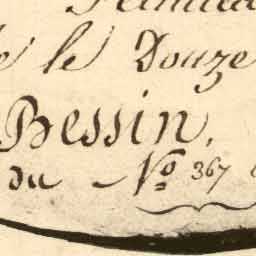 le Douze
Bessin,
du No 367